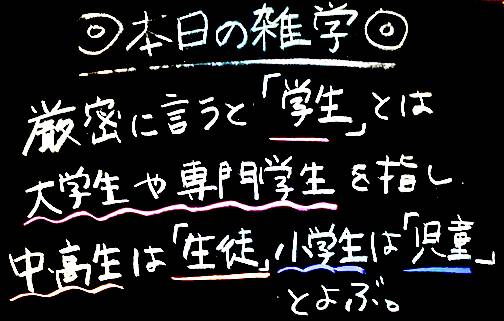 ◎本日の雑学◎
厳密に言うと「学生」とは
大学生や専門学生を指し
中・高生は「生徒」小学生は「児童」
とよぶ。